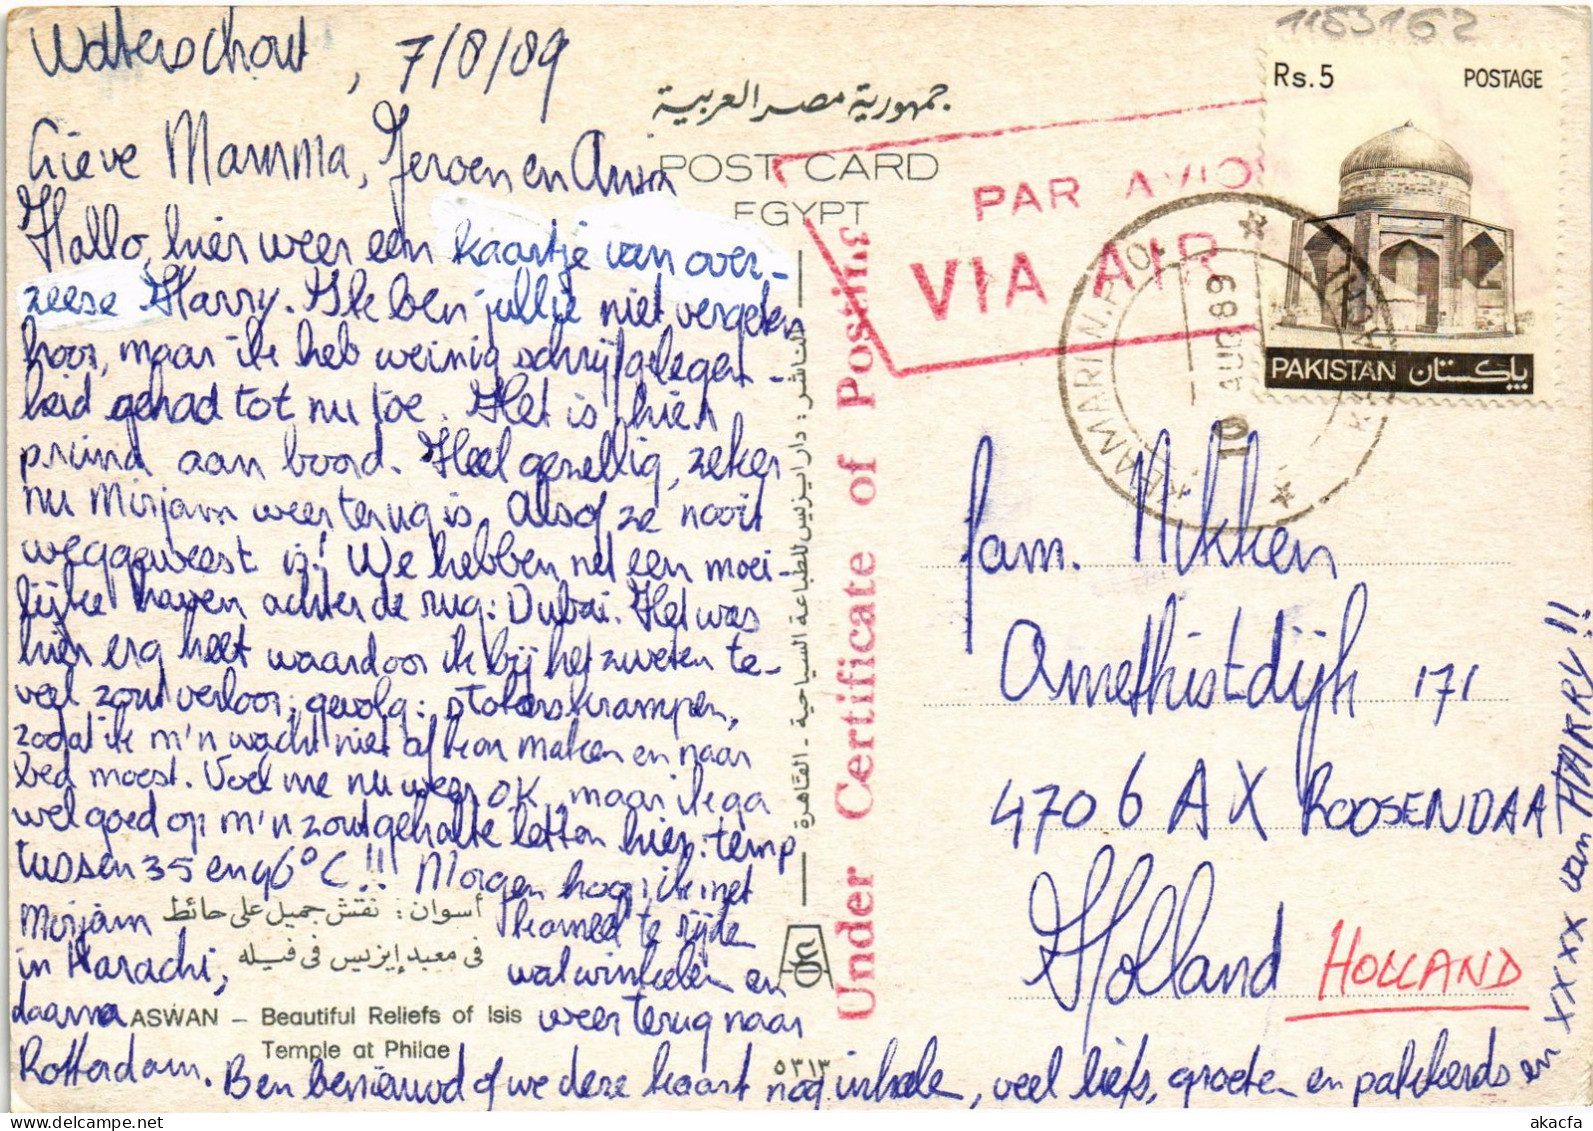 Waterschout, 7/8/89
Lieve Mamma, Jeroen en Anita
Hallo, hier weer een kaartje van over-
zeese Harry. Ik ben jullie niet vergeten
hoor, maar ik heb weinig schrijfgelegen-
heid gehad tot nu toe. Het is hier
prima aan boord. Heel gezellig, zeker
nu Mirjam weer terug is. Alsof ze nooit
weggeweest is! We hebben net een moei-
lijke haven achter de rug: Dubai. Het was
hier erg heet waardoor ik bij het zweten te-
veel zout verloor; gevolg: stokerskrampen,
zodat ik m'n wacht niet af kon maken en naar
bed moest. Voel me nu weer OK, maar ik ga
wel goed op m'n zoutgehalte letten hier: temp
tussen 35 en 46°C!! Morgen hoop ik met
Mirjam kameel te rijden
in Karachi, wat winkelen en
daarna weer terug naar
Rotterdam. Ben benieuwd of we deze kaart nog inhalen, veel liefs, groeten en pakkerds en
xxxx van HARRY!!
جمهورية مصر العربية
POST CARD
EGYPT
الناشر: دار ايزيس للطباعة السياحية - القاهرة
أسوان: نقش جميل على حائط
فى معبد إيزيس فى فيله
ASWAN – Beautiful Reliefs of Isis
Temple at Philae
٥٣١٣
Under Certificate of Posting
PAR AVION
VIA AIR
KEAMARI W.P.O.
KARACHI
10 AUG 89
1183162
Rs.5 POSTAGE
PAKISTAN پاکستان
fam. Nikken
Amethistdijk 171
4706 AX ROOSENDAAL
Holland HOLLAND
akacfa Delcampe.net